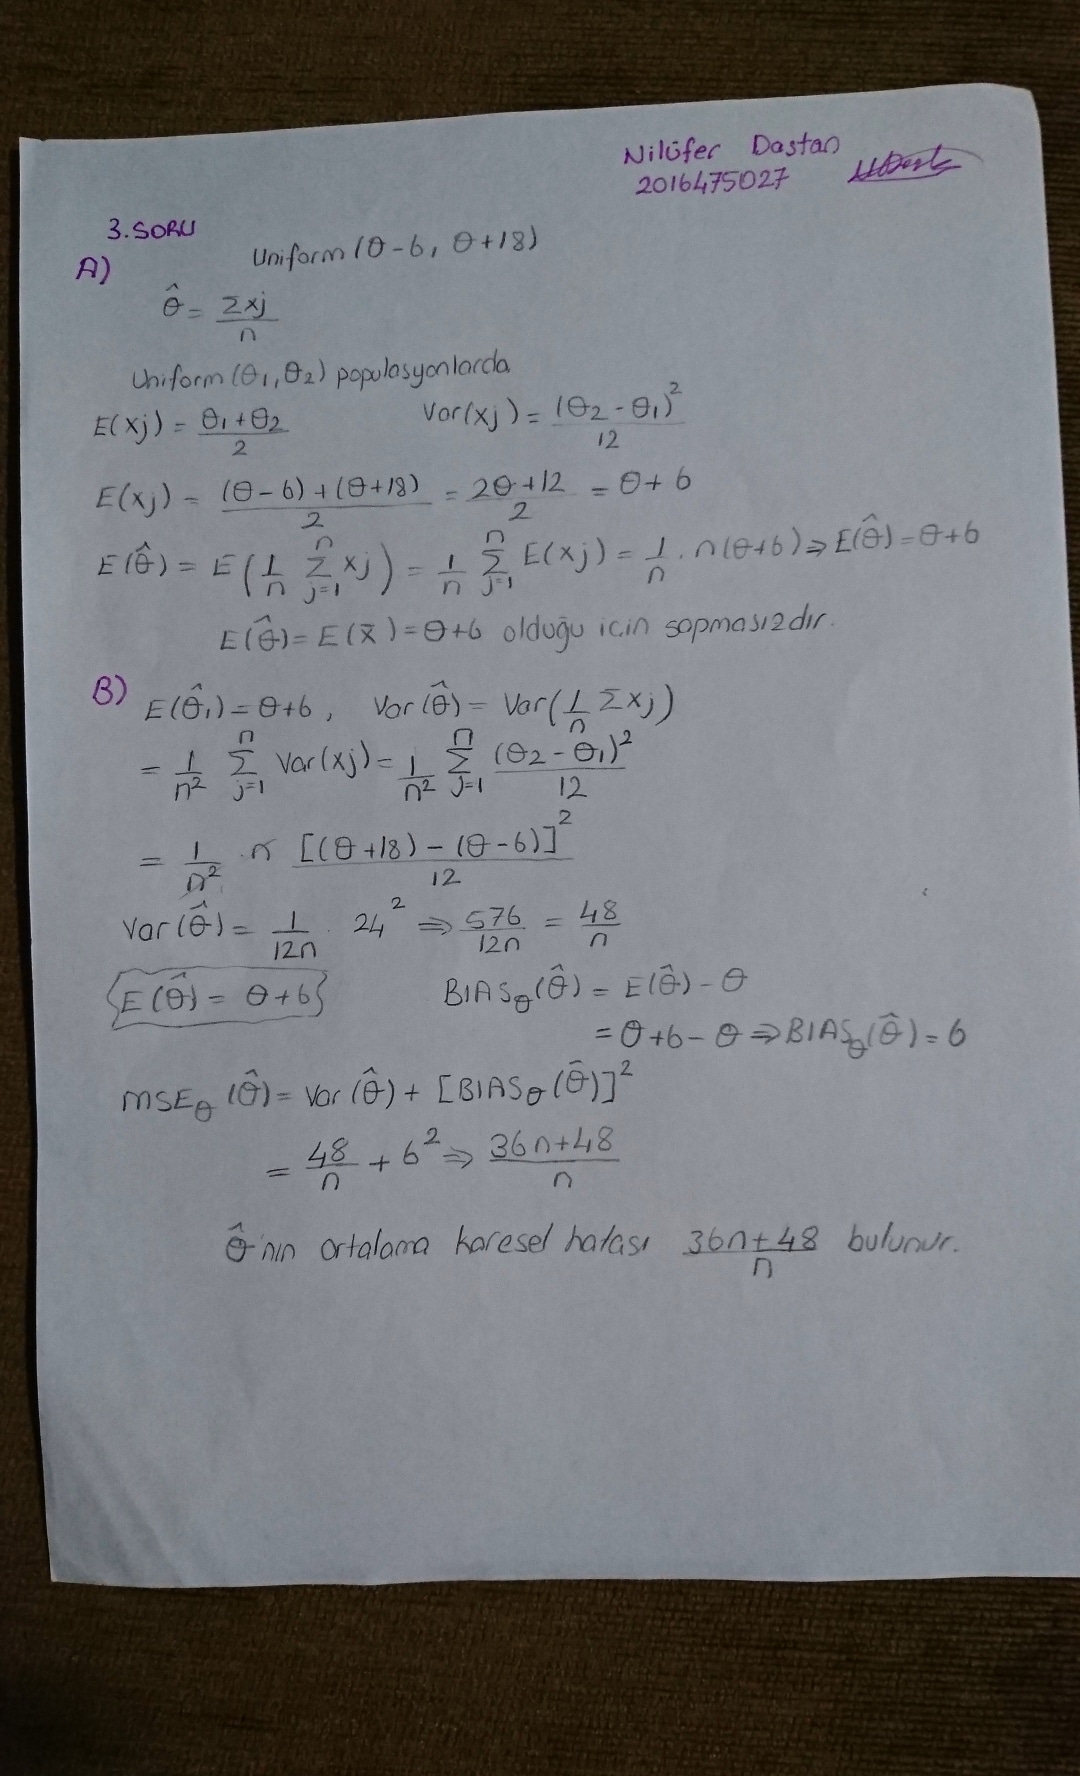 Nilüfer Dastan
2016475027
3.SORU
A) Uniform (θ-6, θ+18)
θ̂ = Σxj / n
Uniform (θ1, θ2) populasyonlarda
E(xj) = (θ1+θ2)/2 Var(xj) = (θ2-θ1)²/12
E(xj) = ((θ-6)+(θ+18))/2 = (2θ+12)/2 = θ+6
E(θ̂) = E(1/n Σ_{j=1}^{n} xj) = 1/n Σ_{j=1}^{n} E(xj) = 1/n . n(θ+6) ⇒ E(θ̂) = θ+6
E(θ̂) = E(x̄) = θ+6 olduğu icin sapmasızdır.
B) E(θ̂1) = θ+6, Var(θ̂) = Var(1/n Σxj)
= 1/n² Σ_{j=1}^{n} Var(xj) = 1/n² Σ_{j=1}^{n} (θ2-θ1)²/12
= 1/n² . n [(θ+18) - (θ-6)]²/12
Var(θ̂) = 1/12n . 24² ⇒ 576/12n = 48/n
E(θ̂) = θ+6 BIASθ(θ̂) = E(θ̂) - θ
= θ+6-θ ⇒ BIASθ(θ̂) = 6
MSEθ(θ̂) = Var(θ̂) + [BIASθ(θ̂)]²
= 48/n + 6² ⇒ (36n+48)/n
θ̂'nın ortalama karesel hatası (36n+48)/n bulunur.